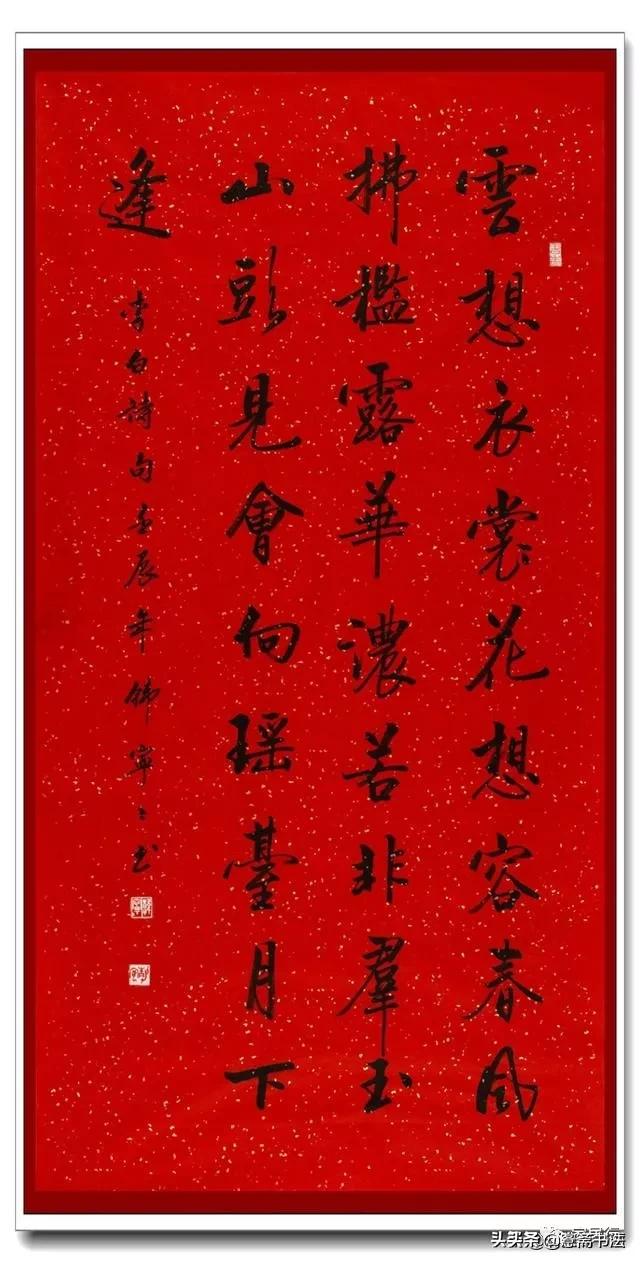 雲想衣裳花想容春風
拂檻露華濃若非羣玉
山頭見會向瑶臺月下
逢
李白詩句壬辰年寧〻书
头条 @斋书法